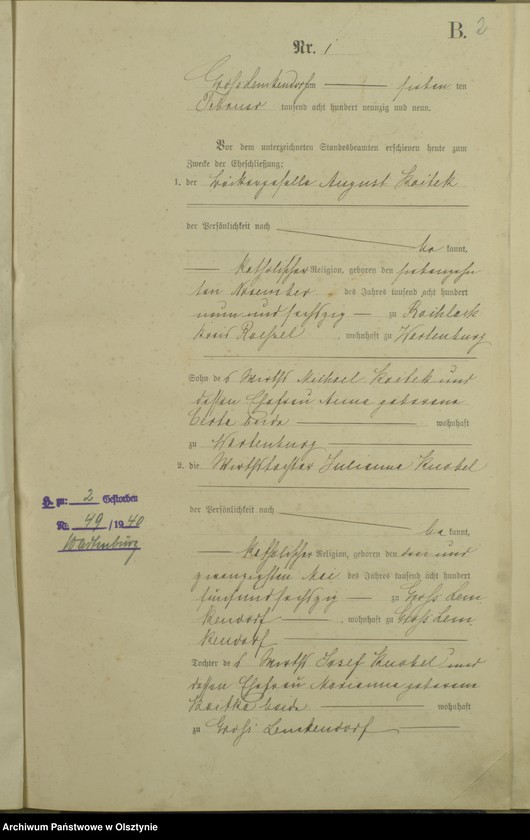 B. 2
Nr. 1
Groß Lemkendorf am sieben ten
Februar tausend acht hundert neunzig und neun.
Vor dem unterzeichneten Standesbeamten erschienen heute zum
Zwecke der Eheschließung:
1. der Bäckergeselle August Koitek
der Persönlichkeit nach
be kannt,
katholischer Religion, geboren den siebenzehn
ten November des Jahres tausend acht hundert
neun und sechzig zu
Kreis Roessel, wohnhaft zu Wartenburg
Sohn des Wirths Michael Koitek und
dessen Ehefrau Anna geborene
beide wohnhaft
zu Wartenburg
2. die Wirthstochter Julianna Knobel
der Persönlichkeit nach
be kannt,
katholischer Religion, geboren den ein und
zwanzigsten Mai des Jahres tausend acht hundert
fünfundsechzig zu Groß Lem
kendorf, wohnhaft zu Groß Lem
kendorf
Tochter des Wirths Josef Knobel und
dessen Ehefrau Marianna geborene
beide wohnhaft
zu Groß Lemkendorf
H. zu: 2 Gestorben
Nr. 49 /1940
Wartenburg
Archiwum Państwowe w Olsztynie